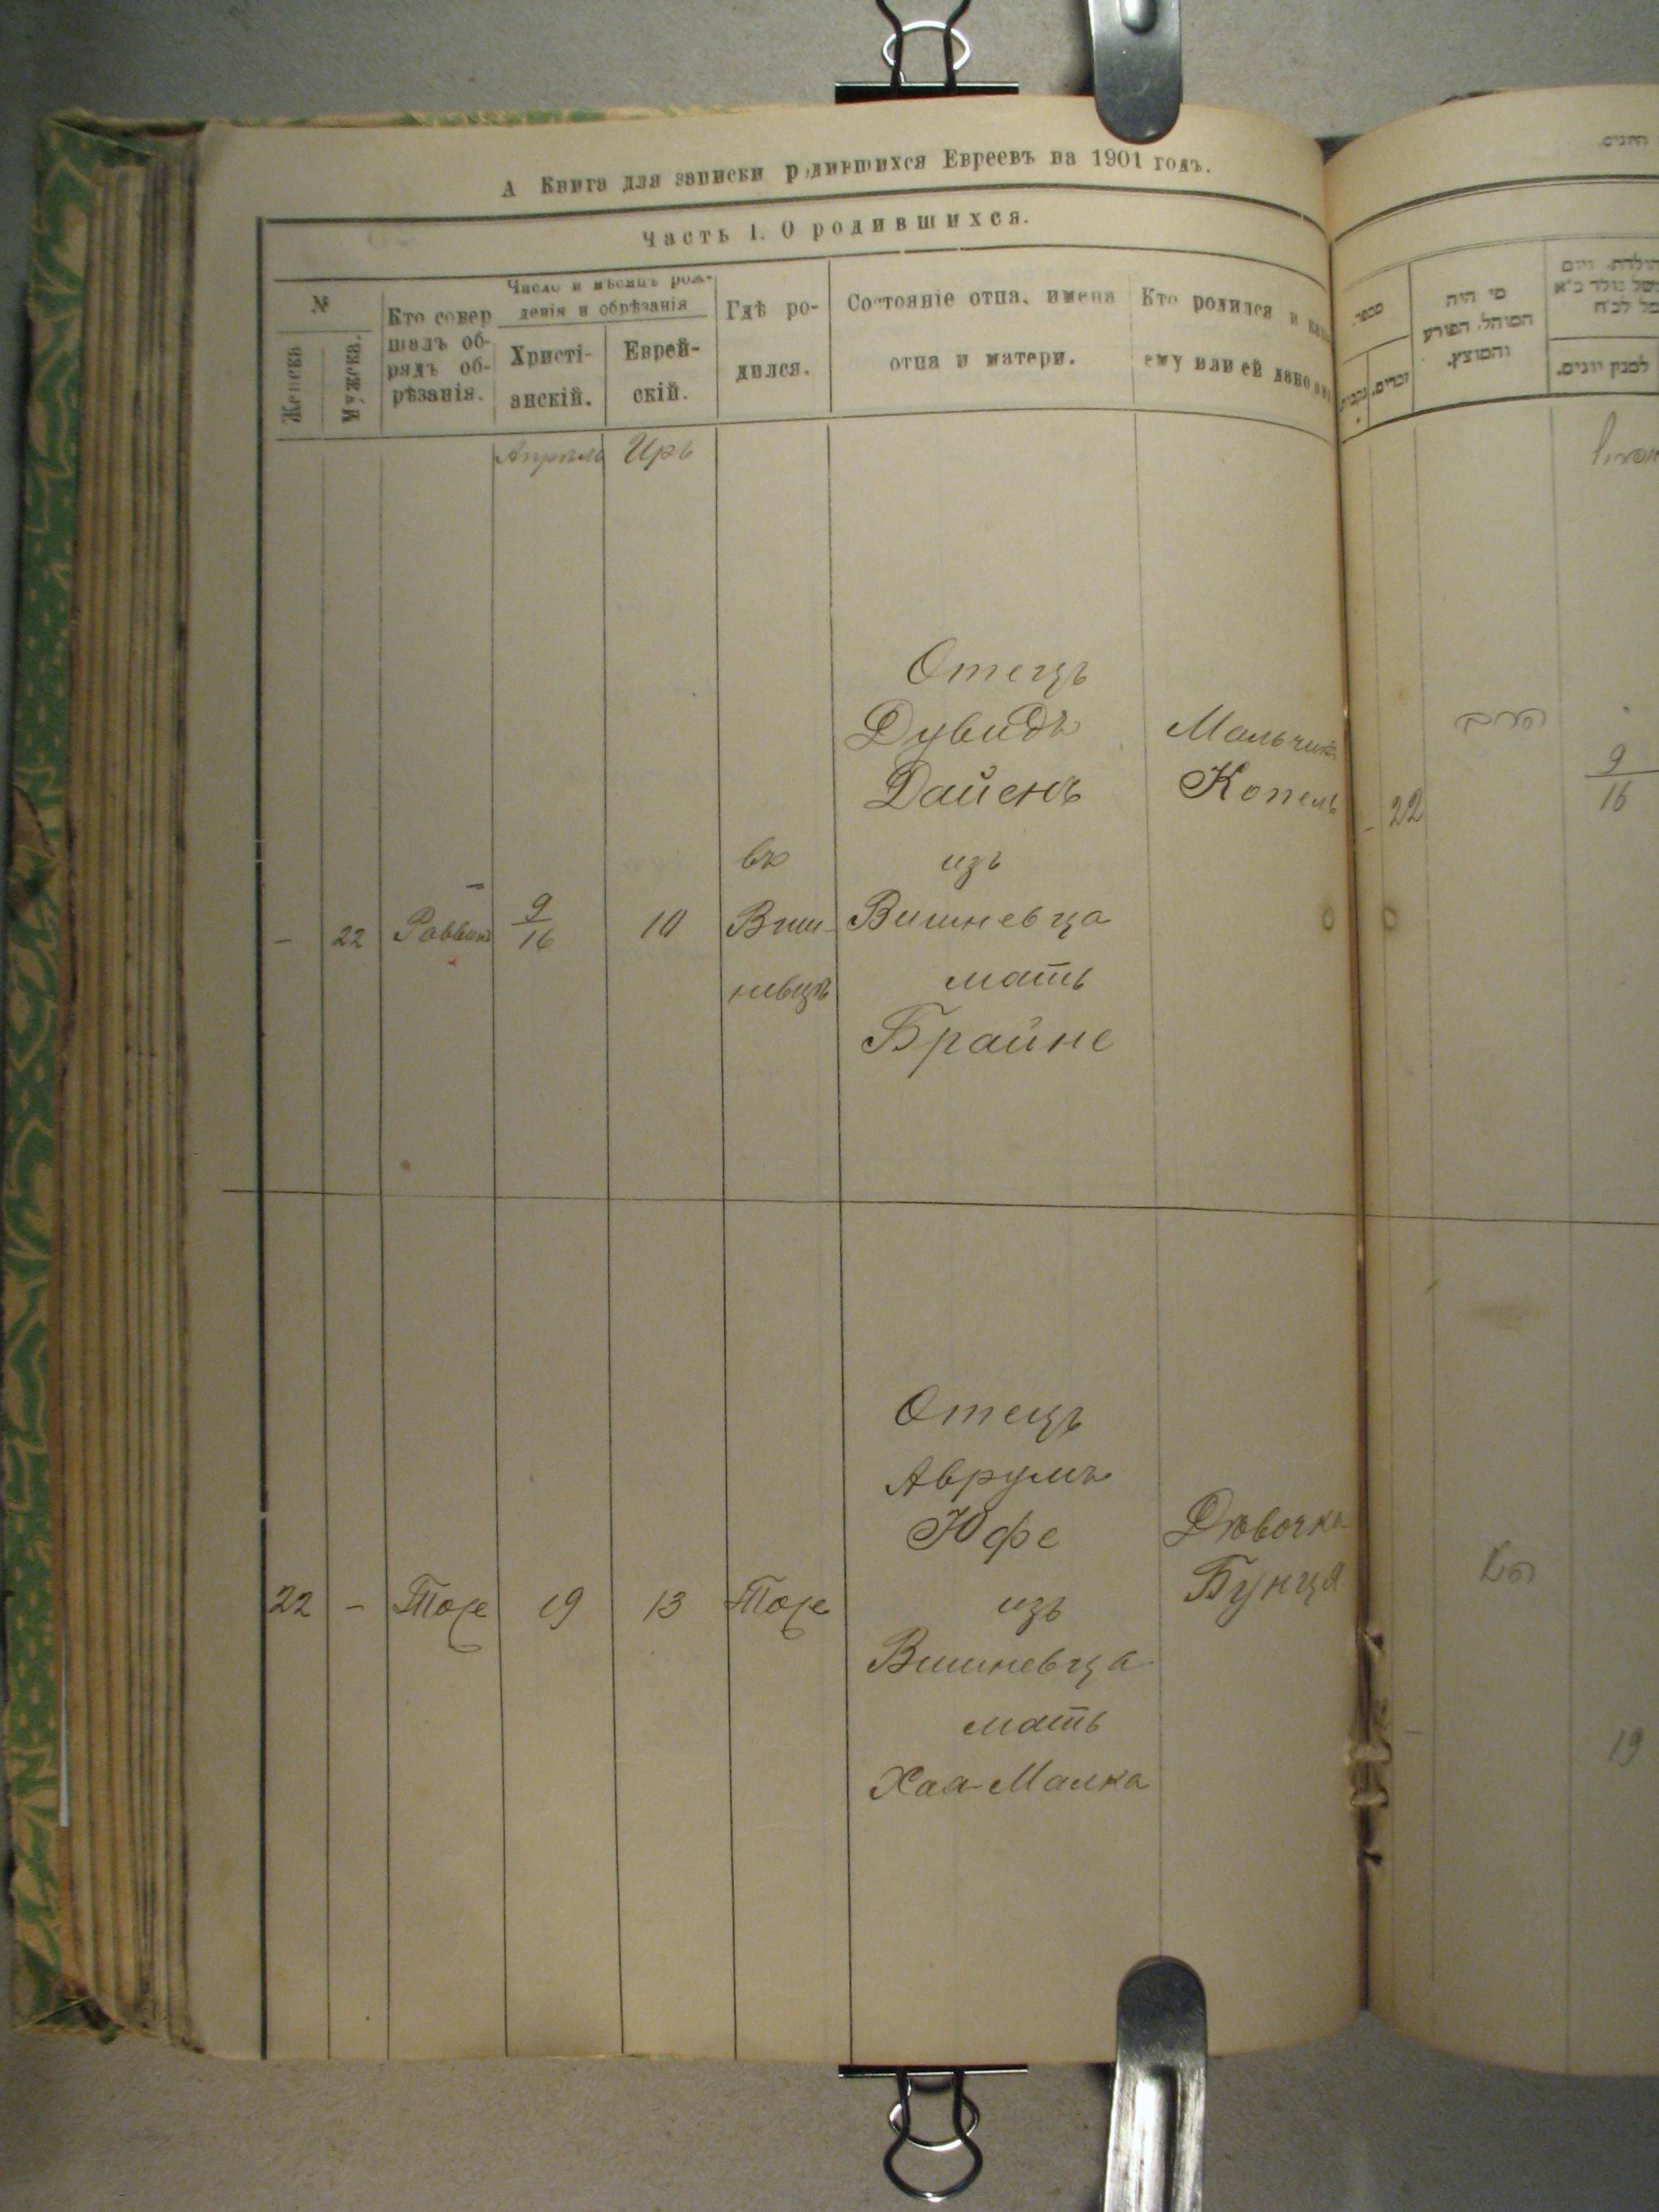 А Книга для записки родившихся Евреевъ на 1901 годъ.
Часть I. О родившихся.
№
Женска
Мужеска.
Кто совер
шалъ об-
рядъ об-
рѣзанія.
Число и мѣсяцъ рож-
денія и обрѣзанія
Христі-
анскій.
Еврей-
скій.
Гдѣ ро-
дился.
Состояніе отца, имена
отца и матери.
Кто родился и
ему или ей дано
Апрѣль
Иръ
- 22 Раввинъ 9/16 10
въ
Виш-
невцѣ
Отецъ
Дувидъ
Дайенъ
изъ
Вишневца
мать
Брайне
Мальчикъ
Копель
22 - Тоже 19 13 Тоже
Отецъ
Аврумъ
Юфе
изъ
Вишневца
мать
Хая-Малка
Дѣвочка
Бунця
מספר
זכרים.
נקבות
מי היה
המוהל, הפורע
והמוצץ.
למנין יונים.
- 22
9/16
-
19